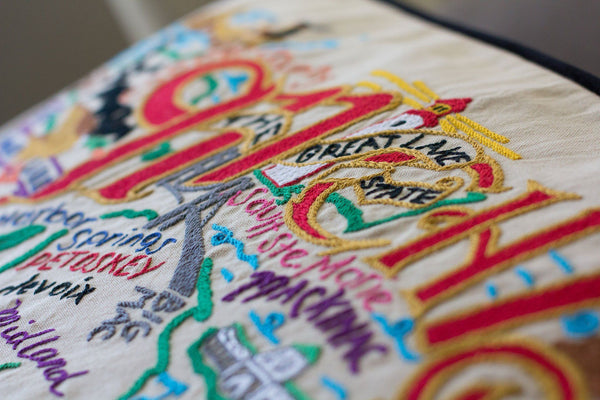 MICH
THE
GREAT LAKE
STATE
Harbor
Springs
PETOSKEY
Sault
Ste Marie
BIG
MAC
MACKINAC
Midland